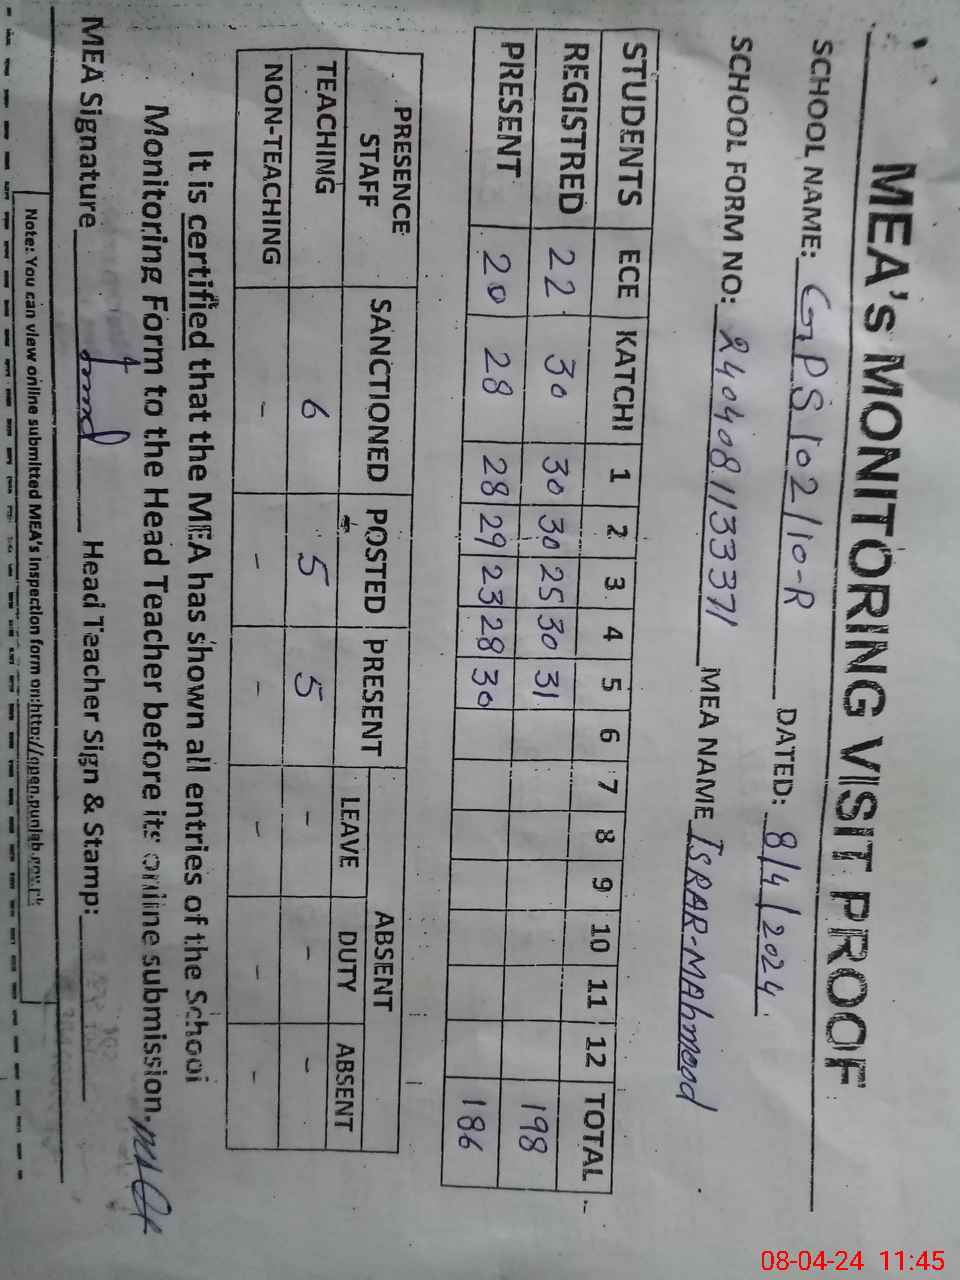 MEA's MONITORING VISIT PROOF
SCHOOL NAME: GPS 102/10-R DATED: 8/4/2024
SCHOOL FORM NO: 2404081133371 MEA NAME ISRAR-MAhmood
STUDENTS ECE KATCHI 1 2 3 4 5 6 7 8 9 10 11 12 TOTAL
REGISTRED 22 30 30 30 25 30 31 198
PRESENT 20 28 28 29 23 28 30 186
PRESENCE STAFF SANCTIONED POSTED PRESENT ABSENT
LEAVE DUTY ABSENT
TEACHING 6 5 5 - - -
NON-TEACHING - - - - - -
It is certified that the MEA has shown all entries of the School
Monitoring Form to the Head Teacher before its online submission.
MEA Signature Head Teacher Sign & Stamp:
Note: You can view online submitted MEA's inspection form on:http://open.punjab.gov.pk
08-04-24 11:45